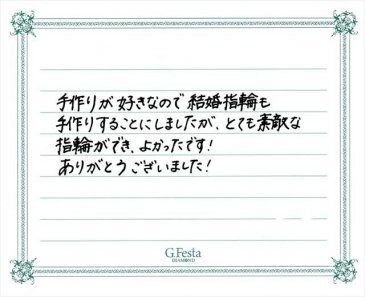 手作りが好きなので結婚指輪も
手作りすることにしましたが、とても素敵な
指輪ができ、よかったです!
ありがとうございました!
G.Festa
DIAMOND